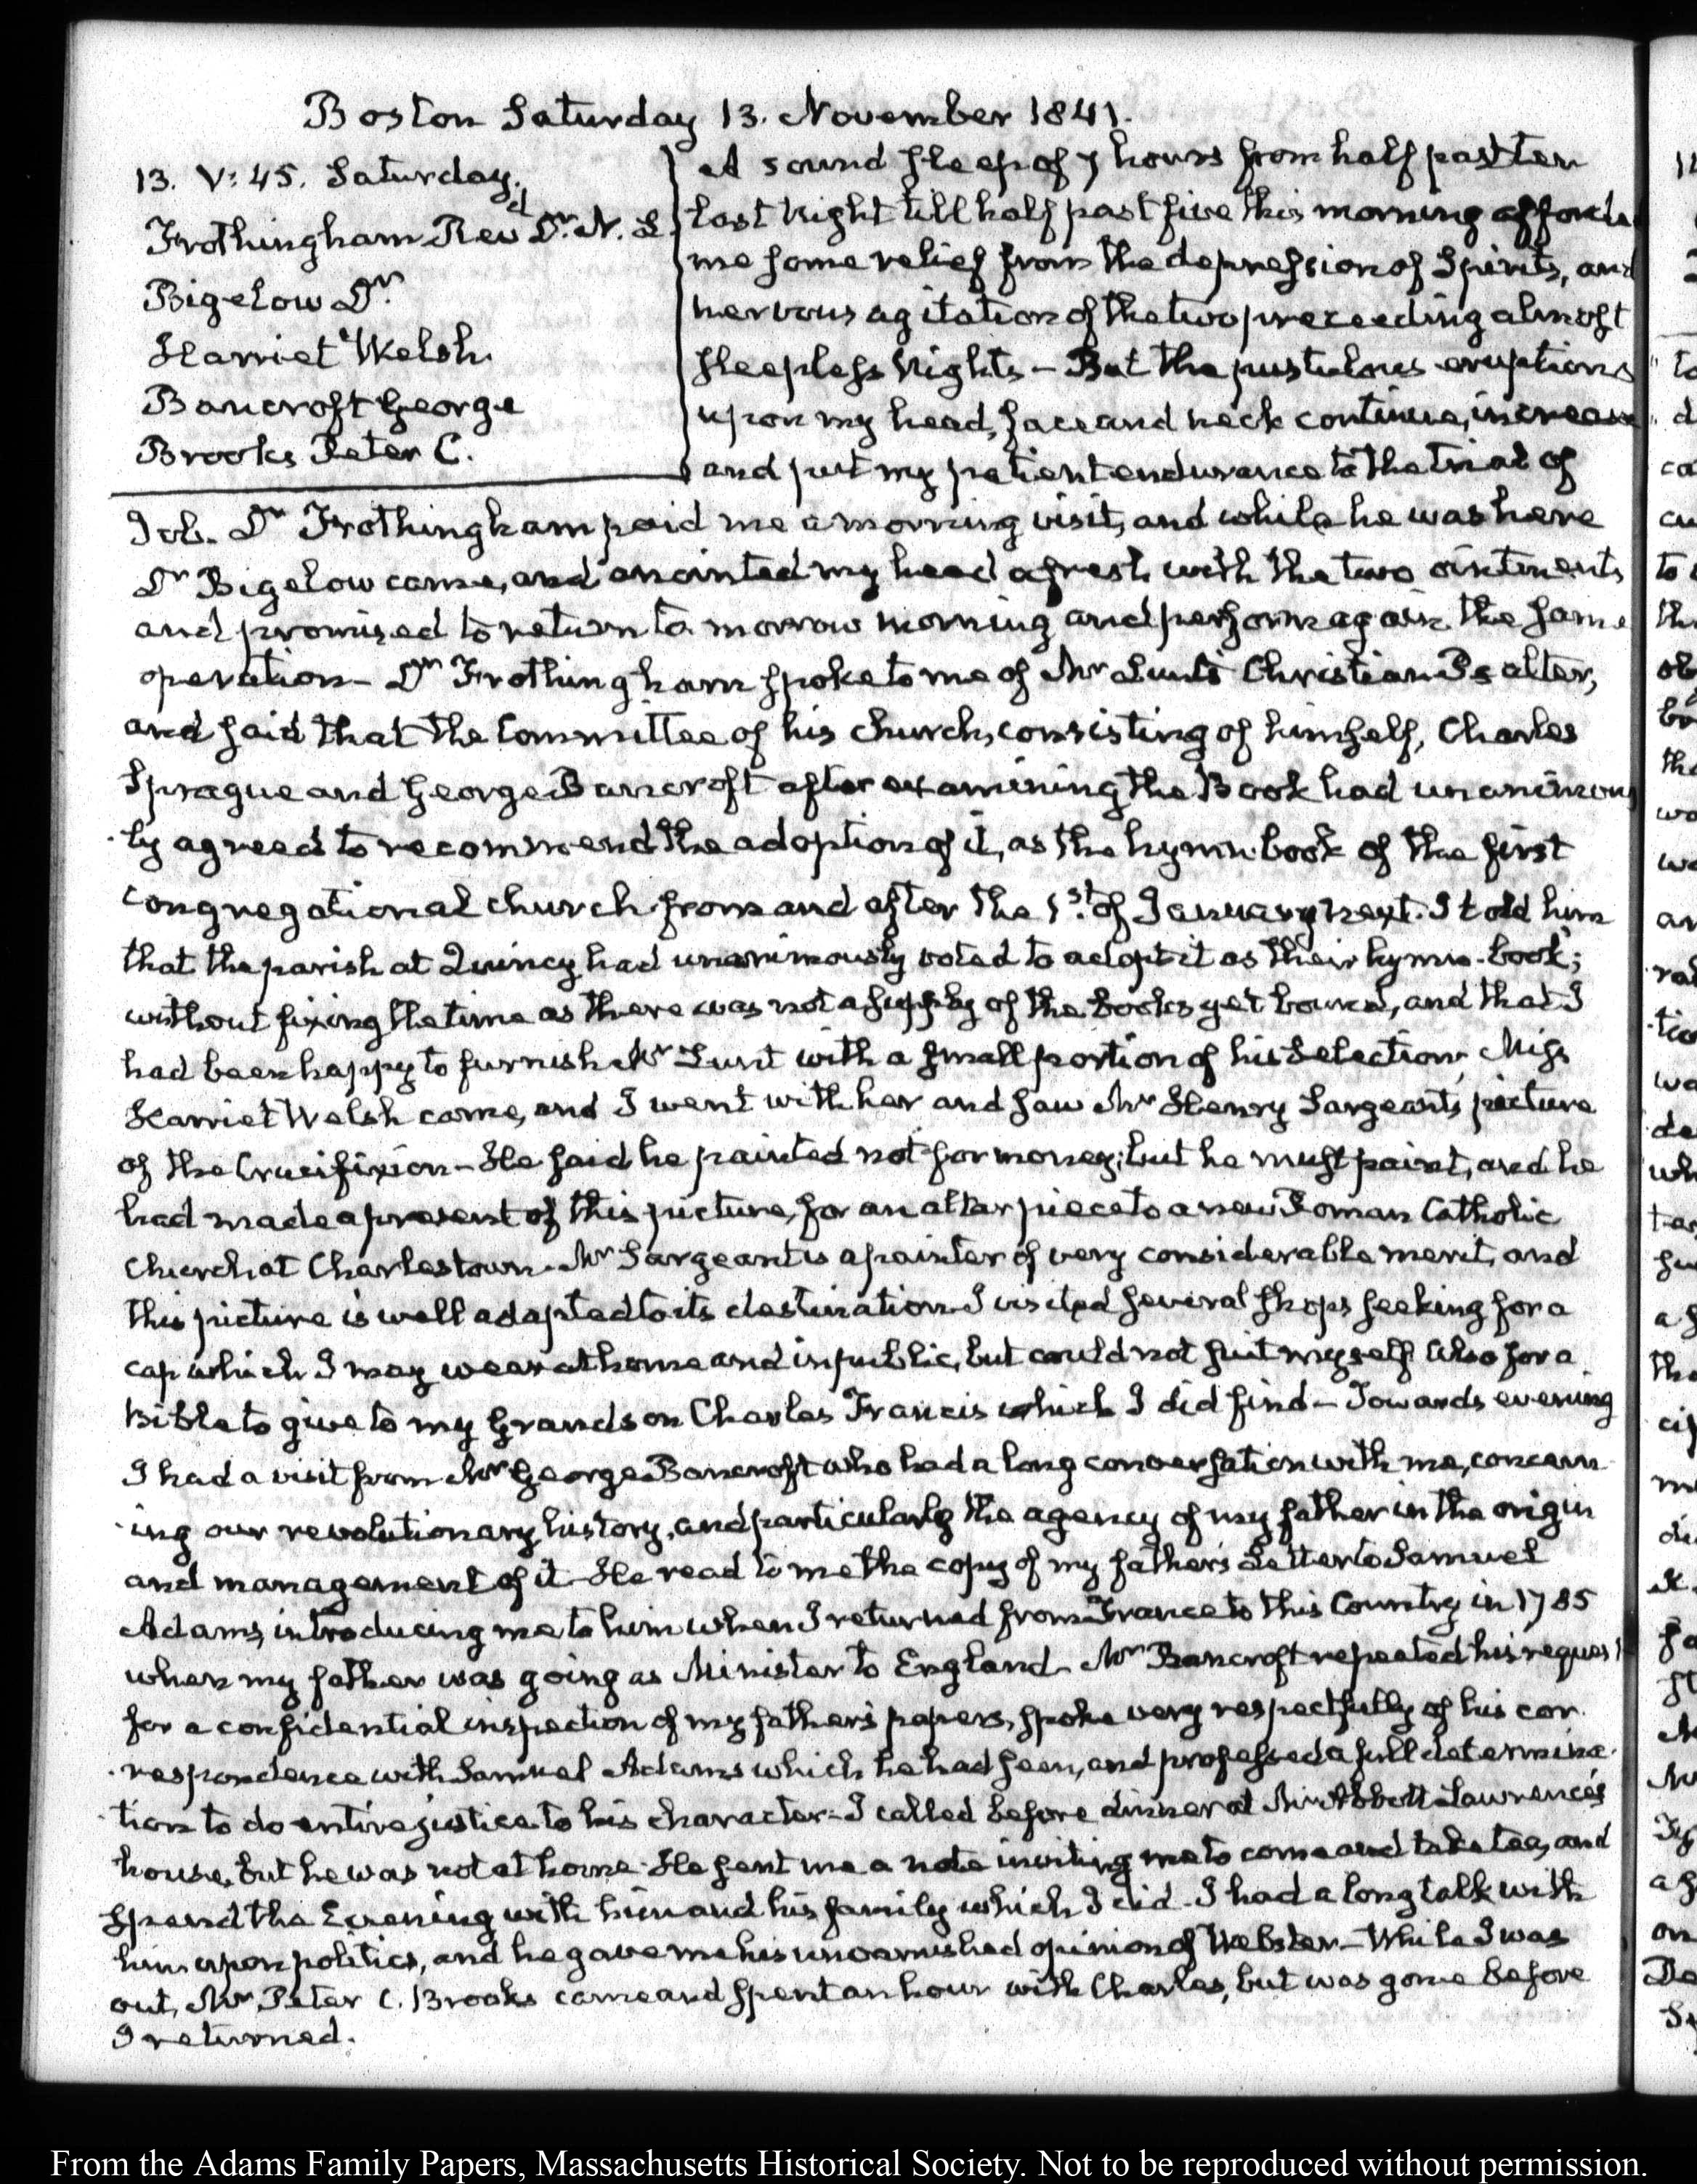 Boston Saturday 13. November 1841.
13. V: 45. Saturday.
Frothingham Revd Dr. N. L.
Bigelow Dr.
Harriet Welsh
Bancroft George
Brooks Peter C.
A sound sleep of 7 hours from half past ten
last Night till half past five this morning affords
me some relief from the depression of Spirits, and
nervous agitation of the two preceeding almost
sleepless Nights – But the pustulous eruptions
upon my head, face and neck continue, increase
and put my patient endurance to the trial of
Job. Dr Frothingham paid me a morning visit, and while he was here
Dr Bigelow came, and anointed my head afresh with the two ointments
and promised to return to morrow morning and perform again the same
operation – Dr Frothingham spoke to me of Mr Lunt's Christian Psalter,
and said that the Committee of his church, consisting of himself, Charles
Sprague and George Bancroft after examining the Book had unanimous
ly agreed to recommend the adoption of it, as the hymn-book of the first
Congregational church from and after the 1st. of January next. I told him
that the parish at Quincy had unanimously voted to adopt it as their hymn-book;
without fixing the time as there was not a supply of the books yet bound, and that I
had been happy to furnish Mr Lunt with a small portion of his Selection, Miss
Harriet Welsh came, and I went with her and saw Mr Henry Sargeant's picture
of the Crucifixion – He said he painted not for money; but he must paint, and he
had made a present of this picture, for an altar piece to a new Roman Catholic
Church at Charlestown – Mr Sargeant is a painter of very considerable merit, and
this picture is well adapted to its destination – I visited several shops seeking for a
cap which I may wear at home and in public, but could not suit myself Also for a
Bible to give to my Grandson Charles Francis which I did find – Towards evening
I had a visit from Mr George Bancroft who had a long conversation with me, concern
ing our revolutionary history, and particularly the agency of my father in the origin
and management of it – He read to me the copy of my father's Letter to Samuel
Adams, introducing me to him when I returned from France to this Country in 1785
when my father was going as Minister to England – Mr Bancroft repeated his request
for a confidential inspection of my father's papers, spoke very respectfully of his cor
respondence with Samuel Adams which he had seen, and professed a full determina
tion to do entire justice to his character – I called before dinner at Mr Abbott Lawrence's
house, but he was not at home – He sent me a note inviting me to come and take tea, and
spend the Evening with him and his family which I did – I had a long talk with
him upon politics, and he gave me his unvarnished opinion of Webster – While I was
out, Mr Peter C. Brooks came and spent an hour with Charles, but was gone before
I returned.
From the Adams Family Papers, Massachusetts Historical Society. Not to be reproduced without permission.